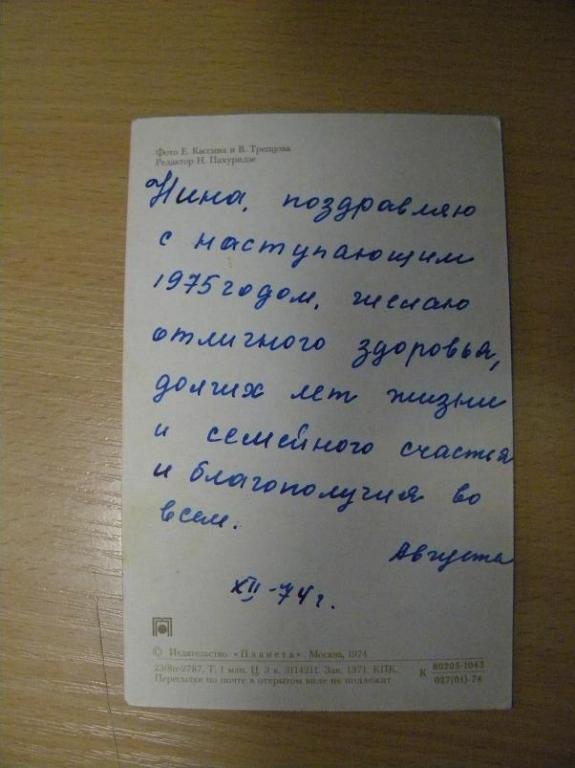 Фото Е. Кассина и В. Трещова
Редактор Н. Пахуридзе
Нина, поздравляю
с наступающим
1975 годом, желаю
отличного здоровья,
долгих лет жизни
и семейного счастья
и благополучия во
всем.
Августа
XII-74 г.
© Издательство «Планета». Москва, 1974
23/8п-2787. Т. 1 млн. Ц. 3 к. 3114211. Зак. 1371. КПК.
Пересылке по почте в открытом виде не подлежит
К 80205-1043
027(01)-74